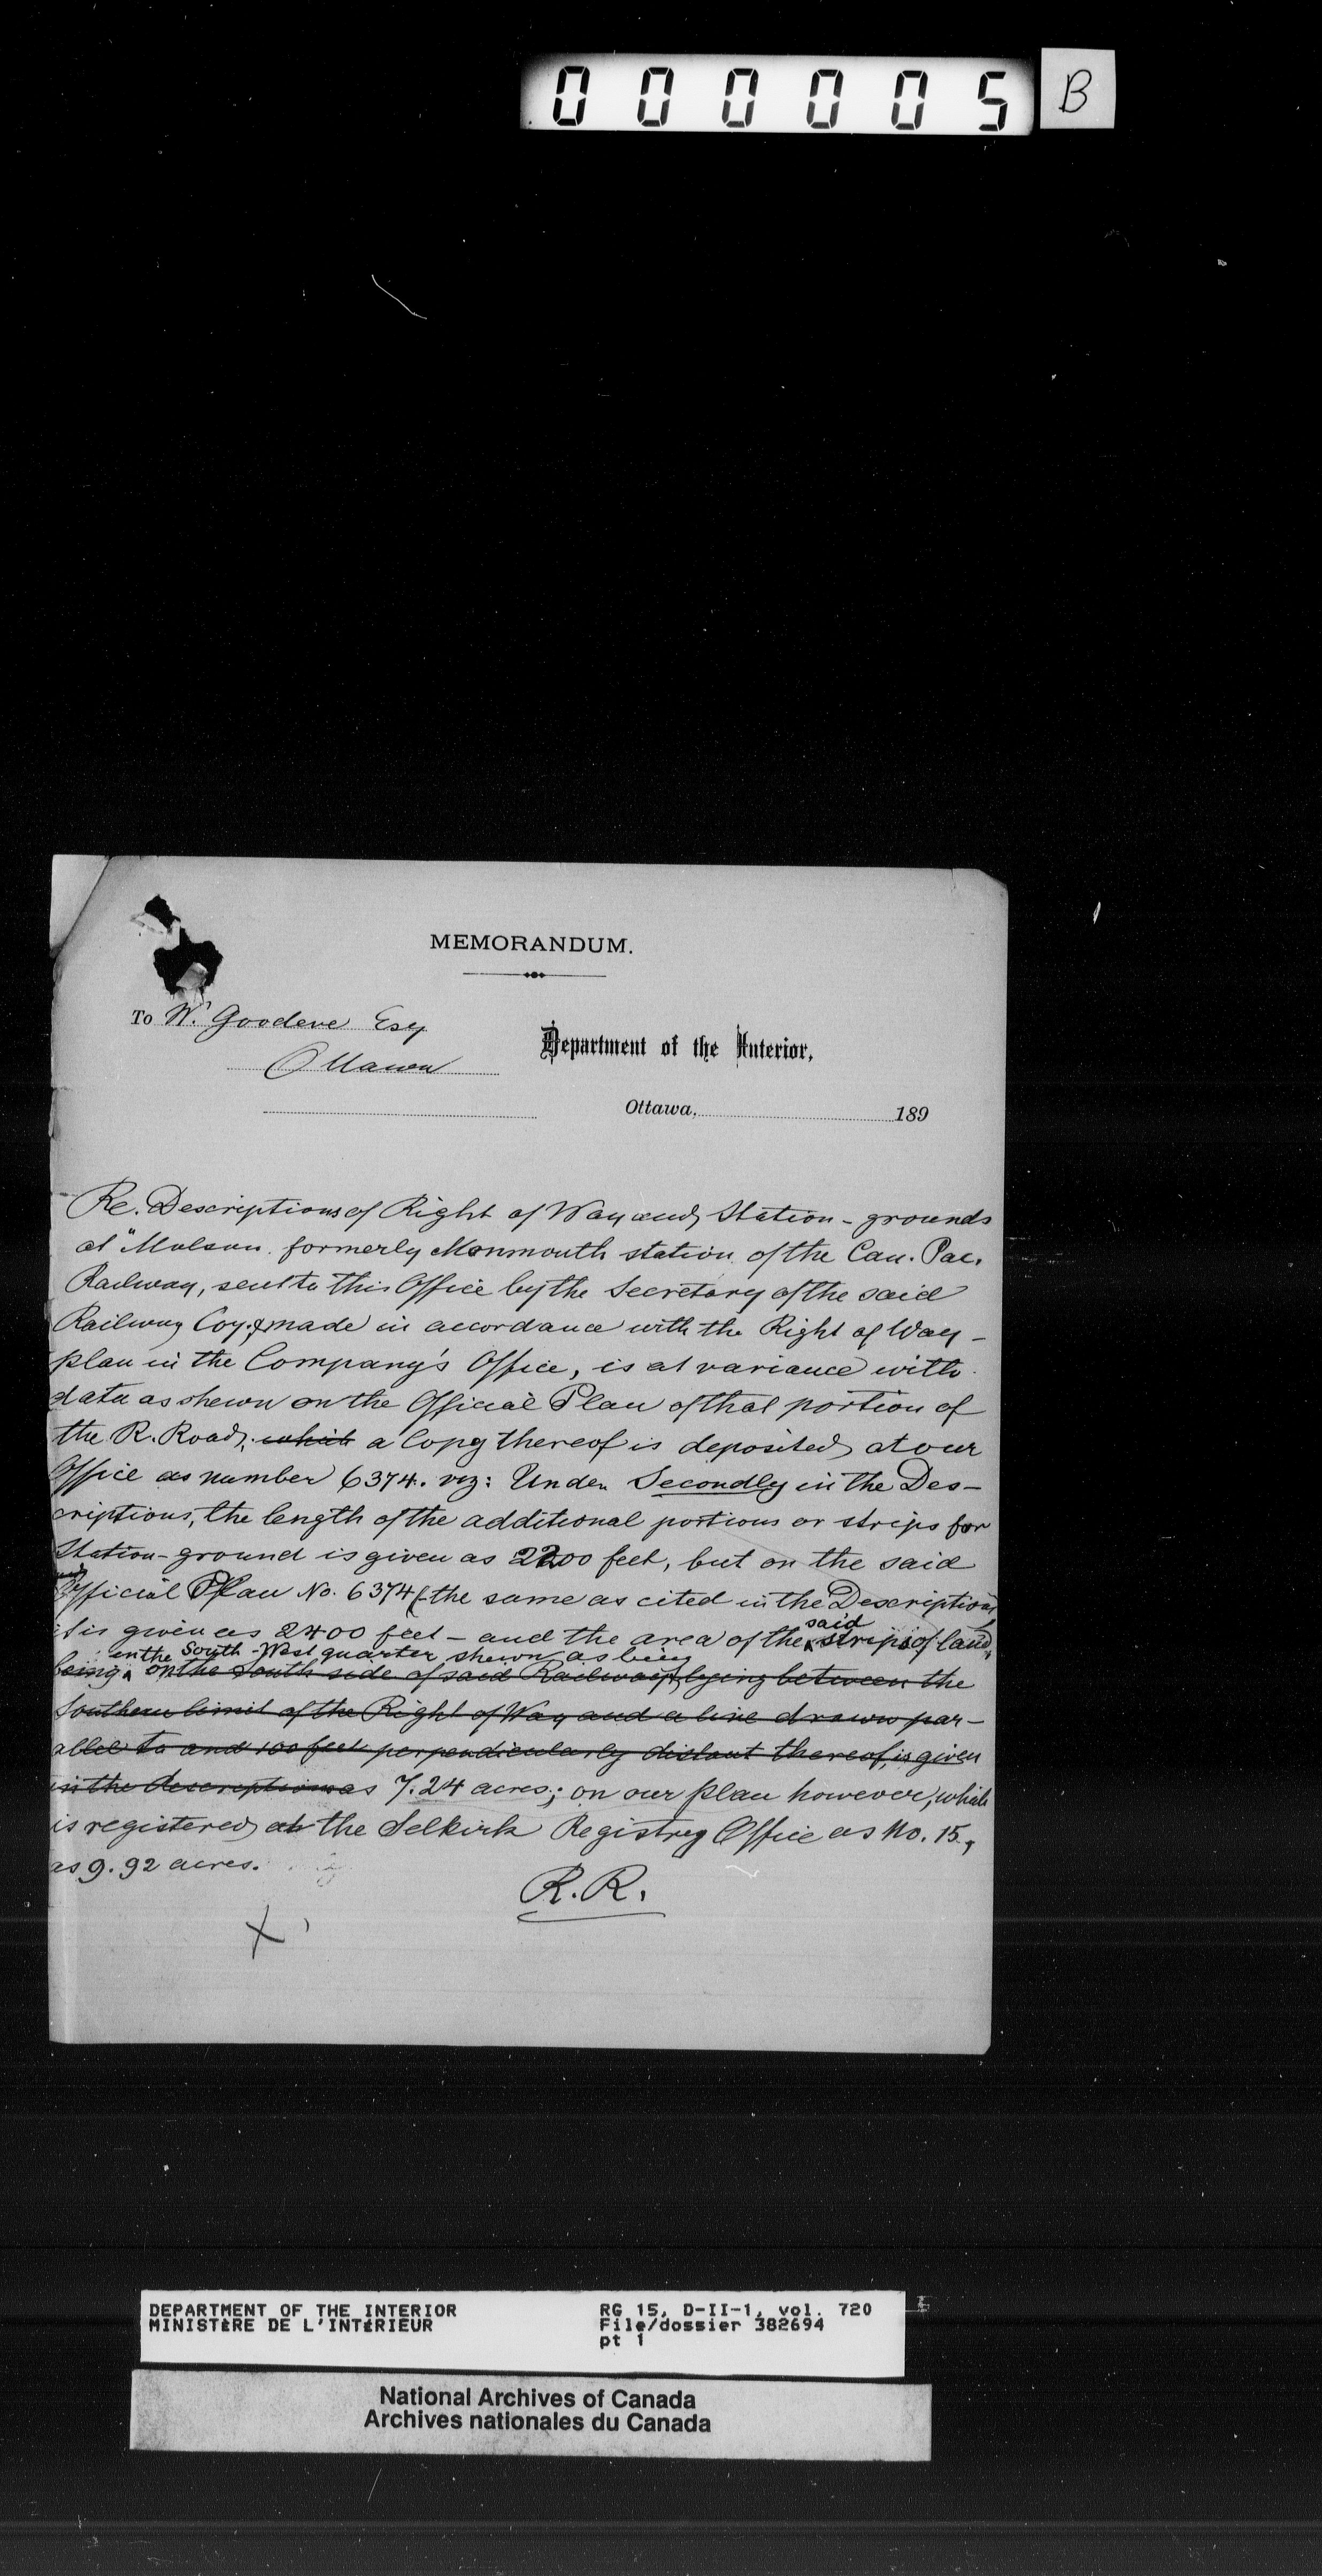 000005 B
MEMORANDUM.
To W. Goodeve Esq
Ottawa
Department of the Interior,
Ottawa, 189
Re. Descriptions of Right of Way and Station-grounds
at "Molson. formerly Monmouth station of the Can. Pac.
Railway, sent to this Office by the Secretary of the said
Railway Coy. & made in accordance with the Right of Way-
plan in the Company's Office, is at variance with
data as shewn on the Official Plan of that portion of
the R. Road, which a Copy thereof is deposited at our
Office as number 6374. viz: Under Secondly in the Des-
criptions, the length of the additional portions or strips for
Station-ground is given as 2200 feet, but on the said
Official Plan No. 6374 (the same as cited in the Description
it is given as 2400 feet - and the area of the said strips of land,
in the South-West quarter shewn as being
being on the South side of said Railway & lying between the
Southern limit of the Right of Way and a line drawn par-
allel to and 100 feet perpendicularly distant thereof, is given
in the descriptions as 7.24 acres; on our plan however, which
is registered at the Selkirk Registry Office as No. 15,
as 9.92 acres.
R.R.
X
DEPARTMENT OF THE INTERIOR RG 15, D-II-1, vol. 720
MINISTÈRE DE L'INTÉRIEUR File/dossier 382694
pt 1
National Archives of Canada
Archives nationales du Canada